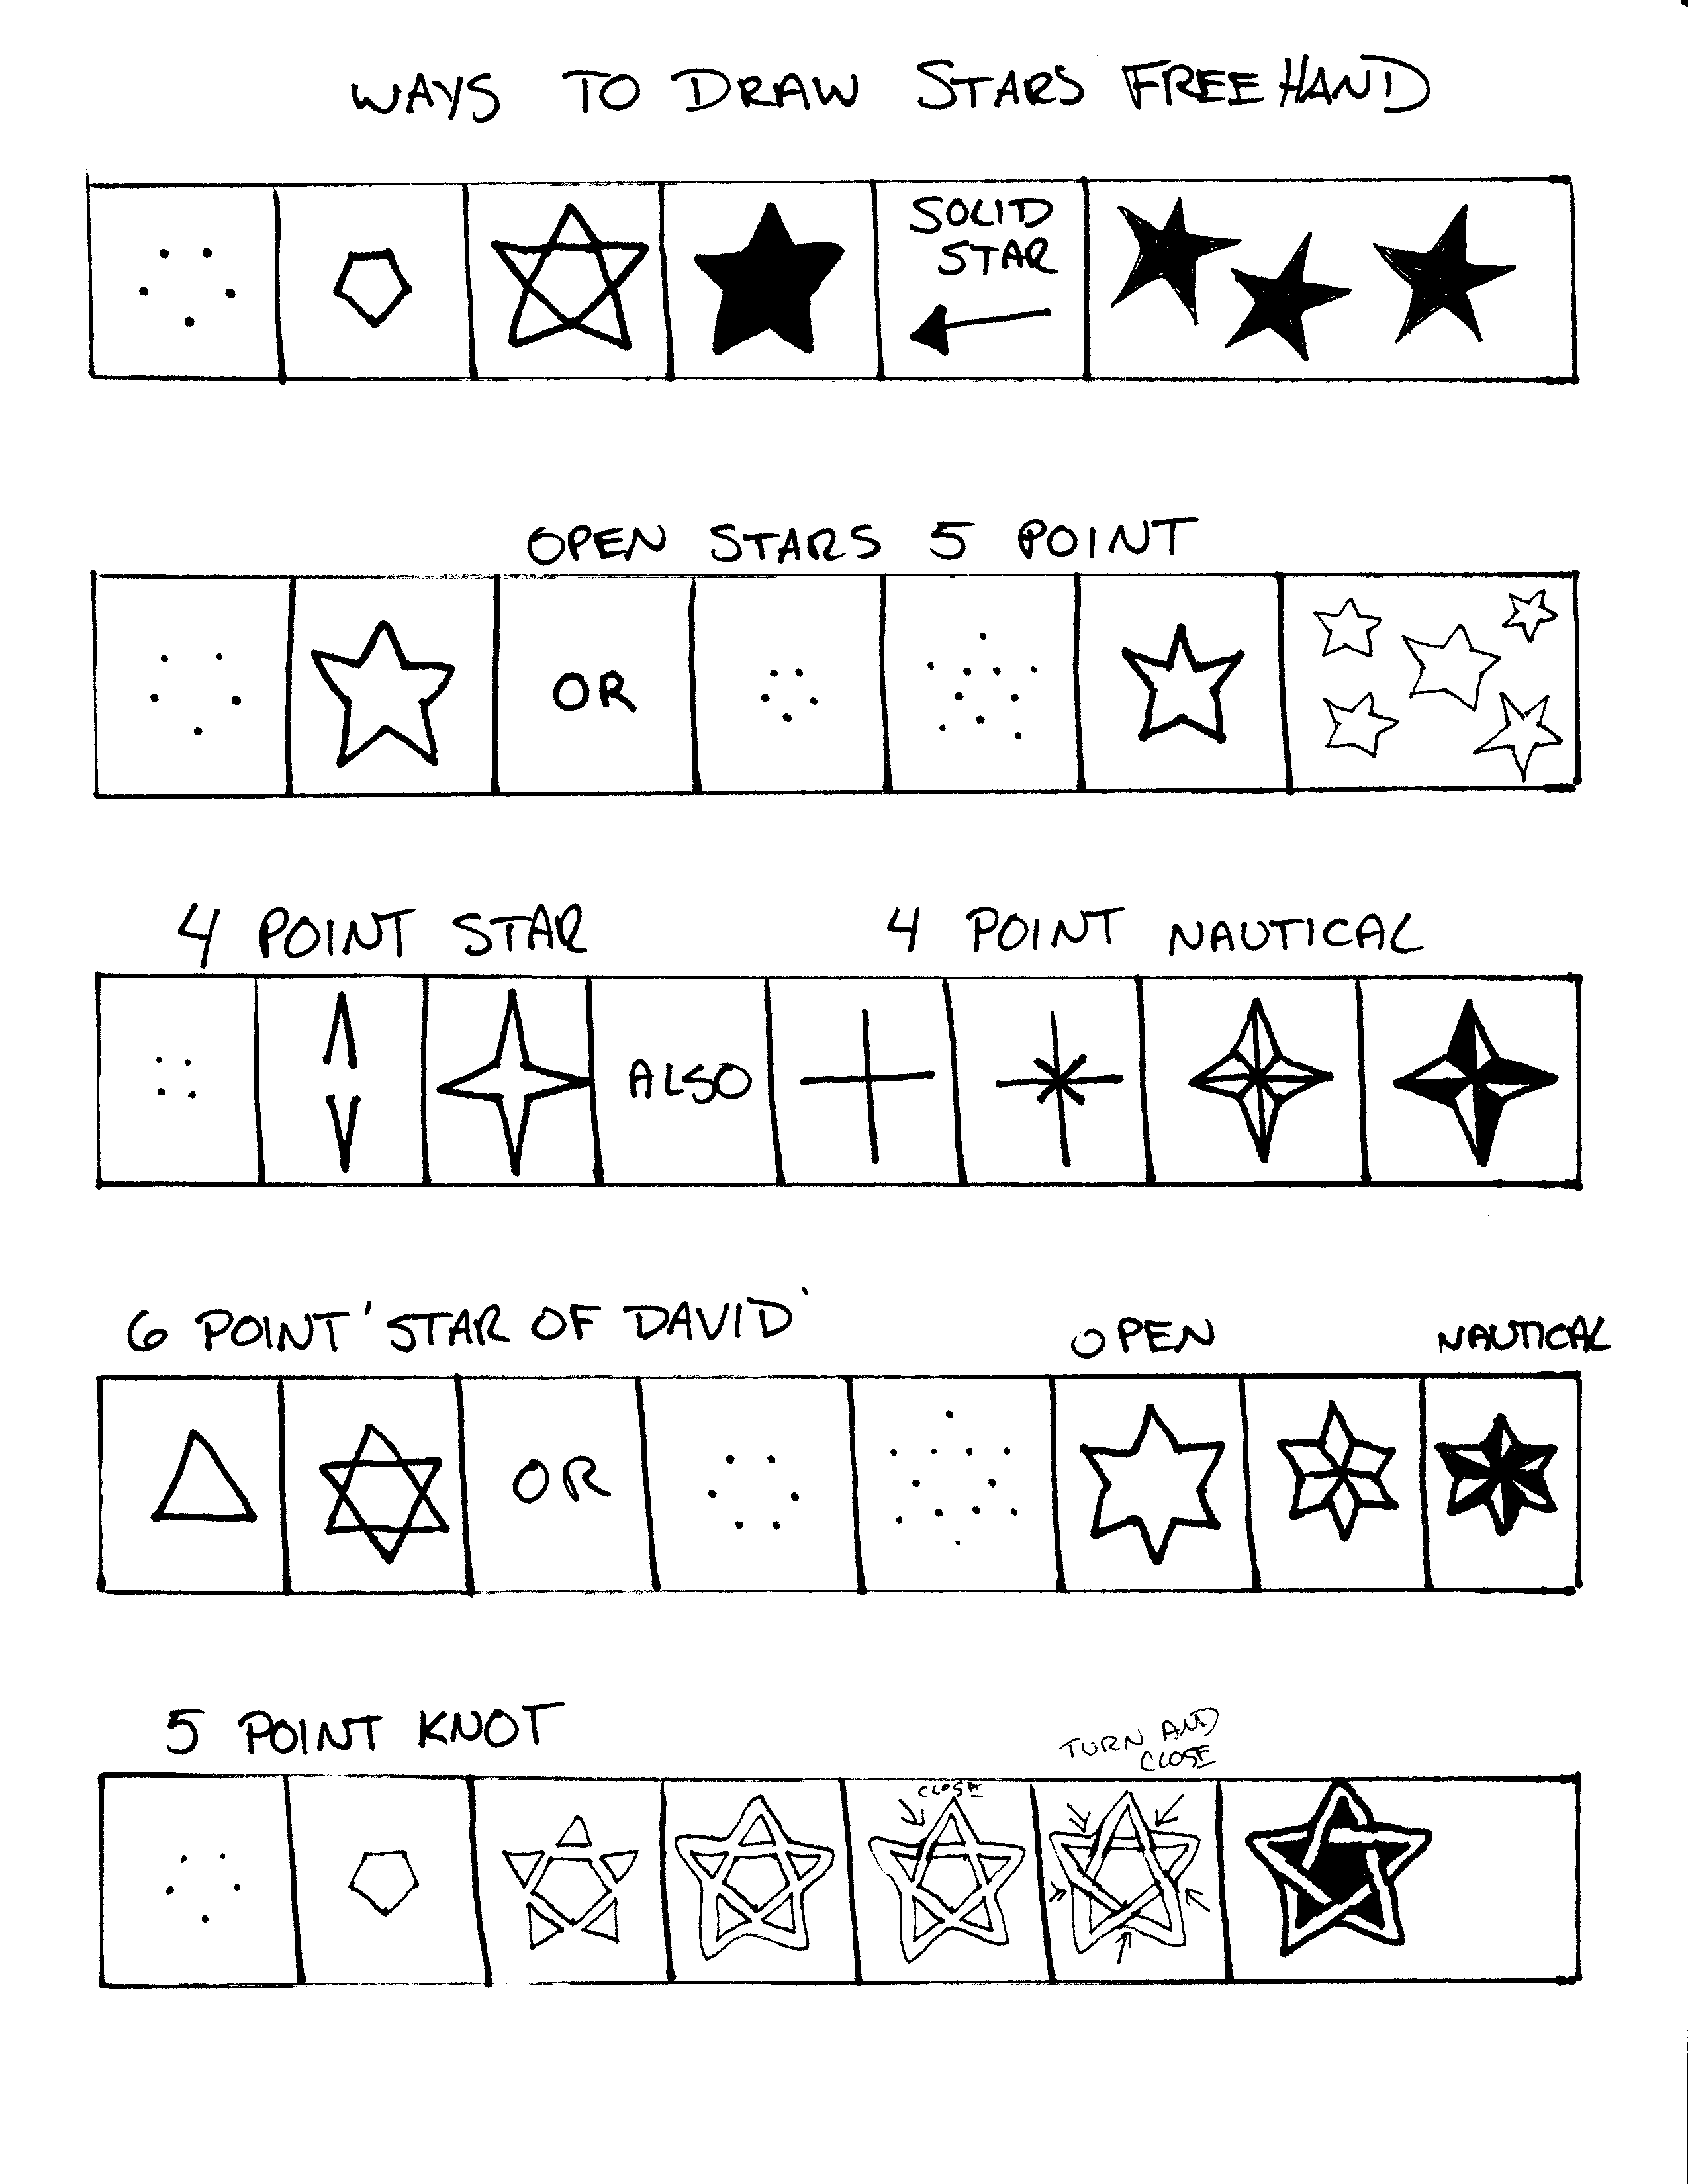 WAYS TO DRAW STARS FREEHAND
SOLID
STAR
OPEN STARS 5 POINT
OR
4 POINT STAR
4 POINT NAUTICAL
ALSO
6 POINT 'STAR OF DAVID'
OPEN
NAUTICAL
OR
5 POINT KNOT
TURN AND
CLOSE
CLOSE